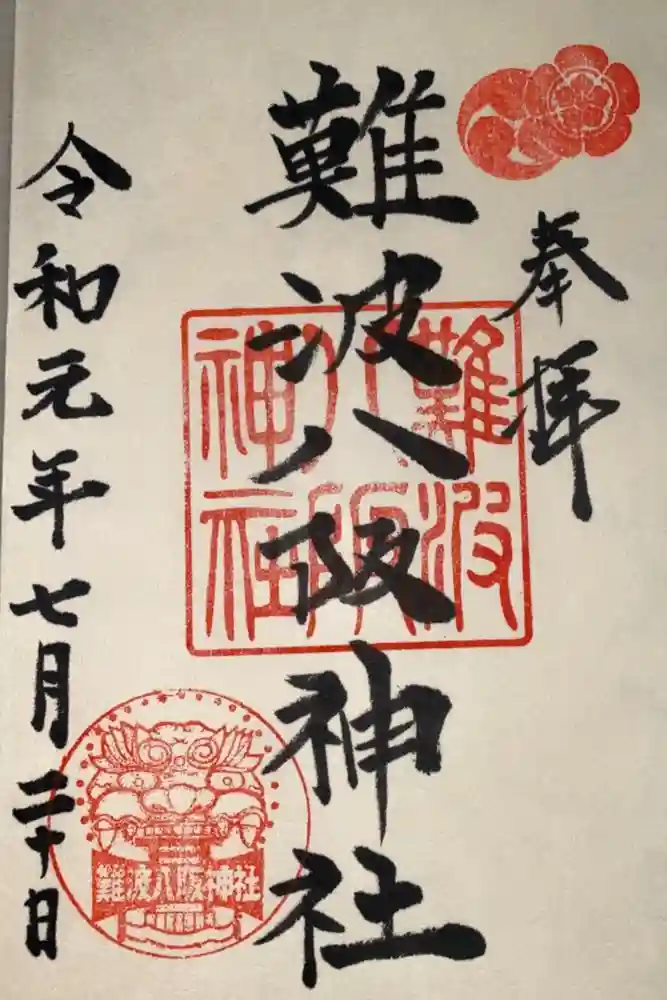 奉拝
難波八阪神社
難波八阪神社
令和元年七月二十日
難波八阪神社